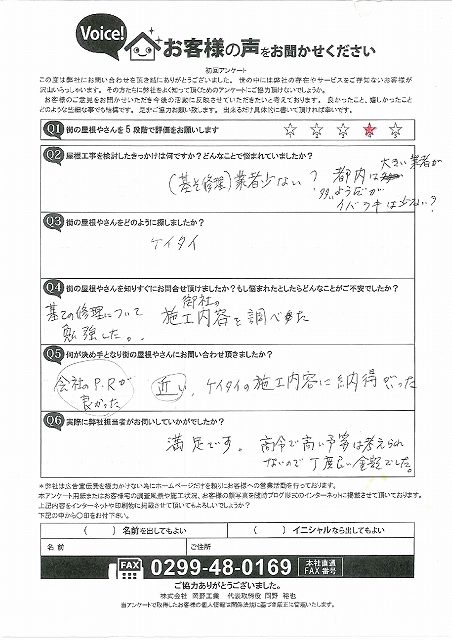 Voice!
お客様の声をお聞かせください
初回アンケート
この度は弊社にお問い合わせを頂き誠にありがとうございました。世の中には弊社の存在やサービスをご存知ないお客様が
沢山いらっしゃいます。その方たちに弊社をよく知って頂くためのアンケートにご協力頂けないでしょうか。
お客様のご意見をお聞かせいただき今後の活動に反映させていただきたいと考えております。良かったこと、嬉しかったこと
どのような些細な事でも結構です。是非ご協力お願い致します。出来るだけ具体的に書いて頂ければ幸いです。
Q1 街の屋根やさんを5段階で評価をお願いします
Q2 屋根工事を検討したきっかけは何ですか?どんなことで悩まれていましたか?
(基そ修理)業者少ない? 都内は大きい業者が
多いようだが
イバラキは少ない?
Q3 街の屋根やさんをどのように探しましたか?
ケイタイ
Q4 街の屋根やさんを知りすぐにお問合せ頂けましたか?もし悩まれたとしたらどんなことがご不安でしたか?
基その修理について
勉強した。.
御社の
施工内容を調べた
Q5 何が決め手となり街の屋根やさんにお問い合わせ頂きましたか?
会社のP.Rが
良かった
近い、ケイタイの施工内容に納得がいった
Q6 実際に弊社担当者がお伺いしていかがでしたか?
満足です。高令で高い予算は考えられ
ないので丁度良い金額でした。
*弊社は広告宣伝費を極力かけない為にホームページだけを頼りにお客様への営業活動を行っております。
本アンケート用紙またはお客様宅の調査風景や施工状況、お客様の顔写真を匿名ブログ形式のインターネットに掲載させて頂いております。
上記内容をインターネットや印刷物に掲載させて頂いてもよろしいでしょうか?
下記の中から○印をお付け下さい。
( )名前を出してもよい
( )イニシャルなら出してもよい
名前
ご住所
FAX 0299-48-0169 本社直通
FAX番号
ご協力ありがとうございました。
株式会社 岡野工業 代表取締役 岡野 裕也
当アンケートで取得したお客様の個人情報は関係法令に基づき厳正に管理いたします。